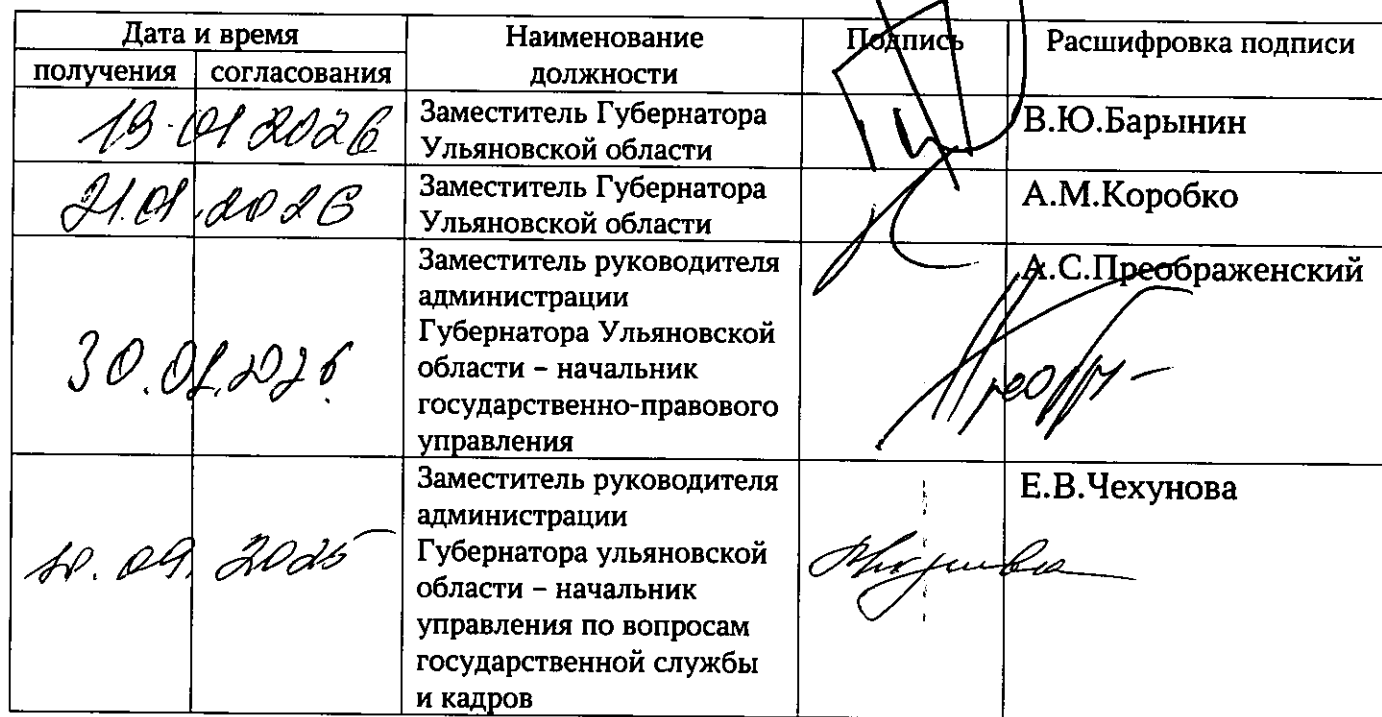 Дата и время
Наименование должности
Подпись
Расшифровка подписи
получения
согласования
19.01 2026
Заместитель Губернатора
Ульяновской области
В.Ю.Барынин
21.01.2026
Заместитель Губернатора
Ульяновской области
А.М.Коробко
30.01.2026
Заместитель руководителя
администрации
Губернатора Ульяновской
области – начальник
государственно-правового
управления
А.С.Преображенский
09. 2025
Заместитель руководителя
администрации
Губернатора ульяновской
области – начальник
управления по вопросам
государственной службы
и кадров
Е.В.Чехунова